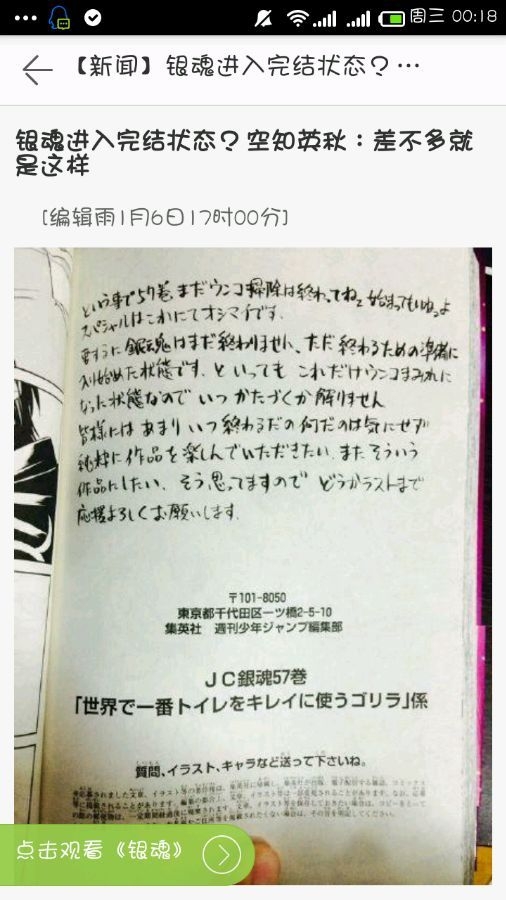 周三 00:18
【新闻】银魂进入完结状态？…
银魂进入完结状态？空知英秋：差不多就
是这样
[编辑雨1月6日17时00分]
という事で57巻、まだウンコ掃除は終わってねェ始まってもいねェよ
スペシャルはこれにてオシマイです。
要するに銀魂はまだ終わりません、ただ終わるための準備に
入り始めた状態です。といっても これだけウンコまみれに
なった状態なので いつ かたづくか解りません
皆様には あまり いつ終わるだの何だのは気にせず
純粋に作品を楽しんでいただきたい、またそういう
作品にしたい、そう思ってますので どうかラストまで
応援よろしくお願いします。
〒101-8050
東京都千代田区一ツ橋2-5-10
集英社 週刊少年ジャンプ編集部
JC銀魂57巻
「世界で一番トイレをキレイに使うゴリラ」係
質問、イラスト、キャラなど送って下さいね。
点击观看《银魂》